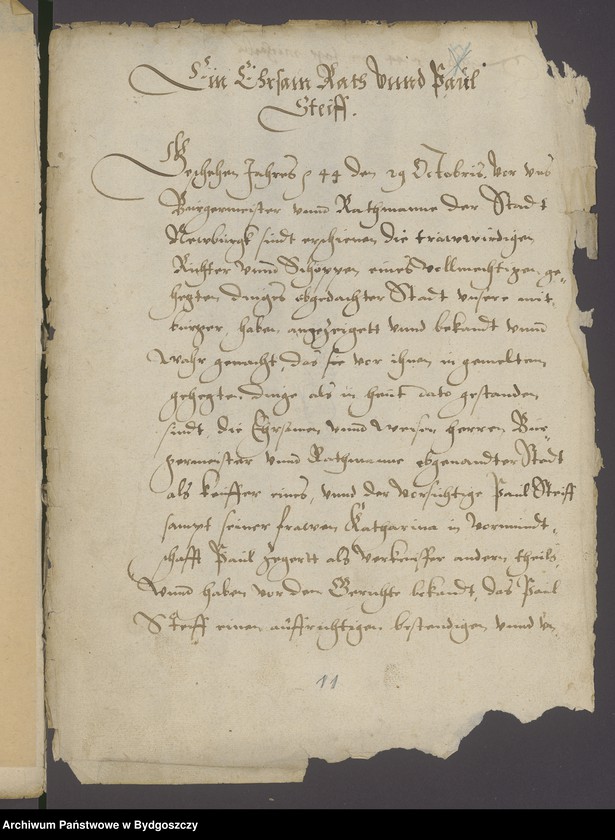 Ein Ehrsam Rath vnnd Paul
Steiff.
Geschehen Jahres 44 den 29 Octobris. Vor vns
Burgermeister vnnd Rathmanne der Stadt
Newburgk sindt erschienen die trawwirdigen
Richter vnnd Schöppen eines vollmechtigen ge-
hegten dinges obgedachter Stadt vnsere mit-
burger, haben angezeigett vnnd bekandt vnnd
wahr gemacht, das sie vor ihnen in gemeltem
gehegten dinge als in heut dato gestanden
sindt, die Ehrsamen vnnd weisen herren Bur-
germeister vnnd Rathmanne obgenandter Stadt
als keuffer eines, vnnd der vorsichtige Paul Steiff
sampt seiner frawen Katharina in vormundt-
schafft Paul als verkeuffer andern theils,
Vnnd haben vor dem Gerichte bekandt, das Paul
Steiff einen auffrichtigen bestendigen vnnd vn-
11
Archiwum Państwowe w Bydgoszczy